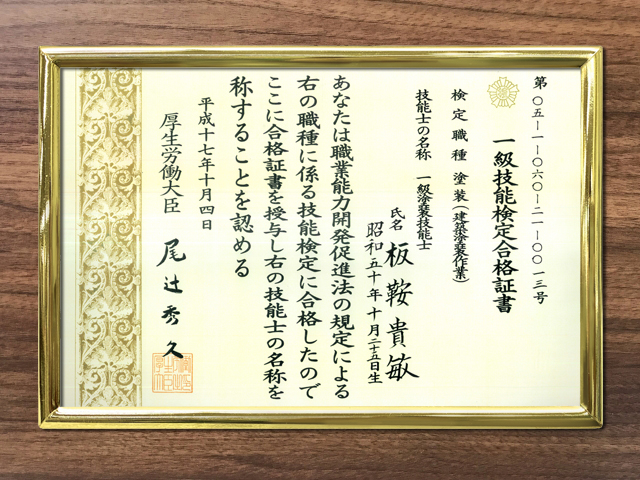 第〇五―一―〇六〇―二一―〇〇一三号
一級技能検定合格証書
検定職種 塗装(建築塗装作業)
技能士の名称 一級塗装技能士
氏名 板鞍貴敏
昭和五十年十月二十五日生
あなたは職業能力開発促進法の規定による
右の職種に係る技能検定に合格したので
ここに合格証書を授与し右の技能士の名称を
称することを認める
平成十七年十月四日
厚生労働大臣 尾辻秀久